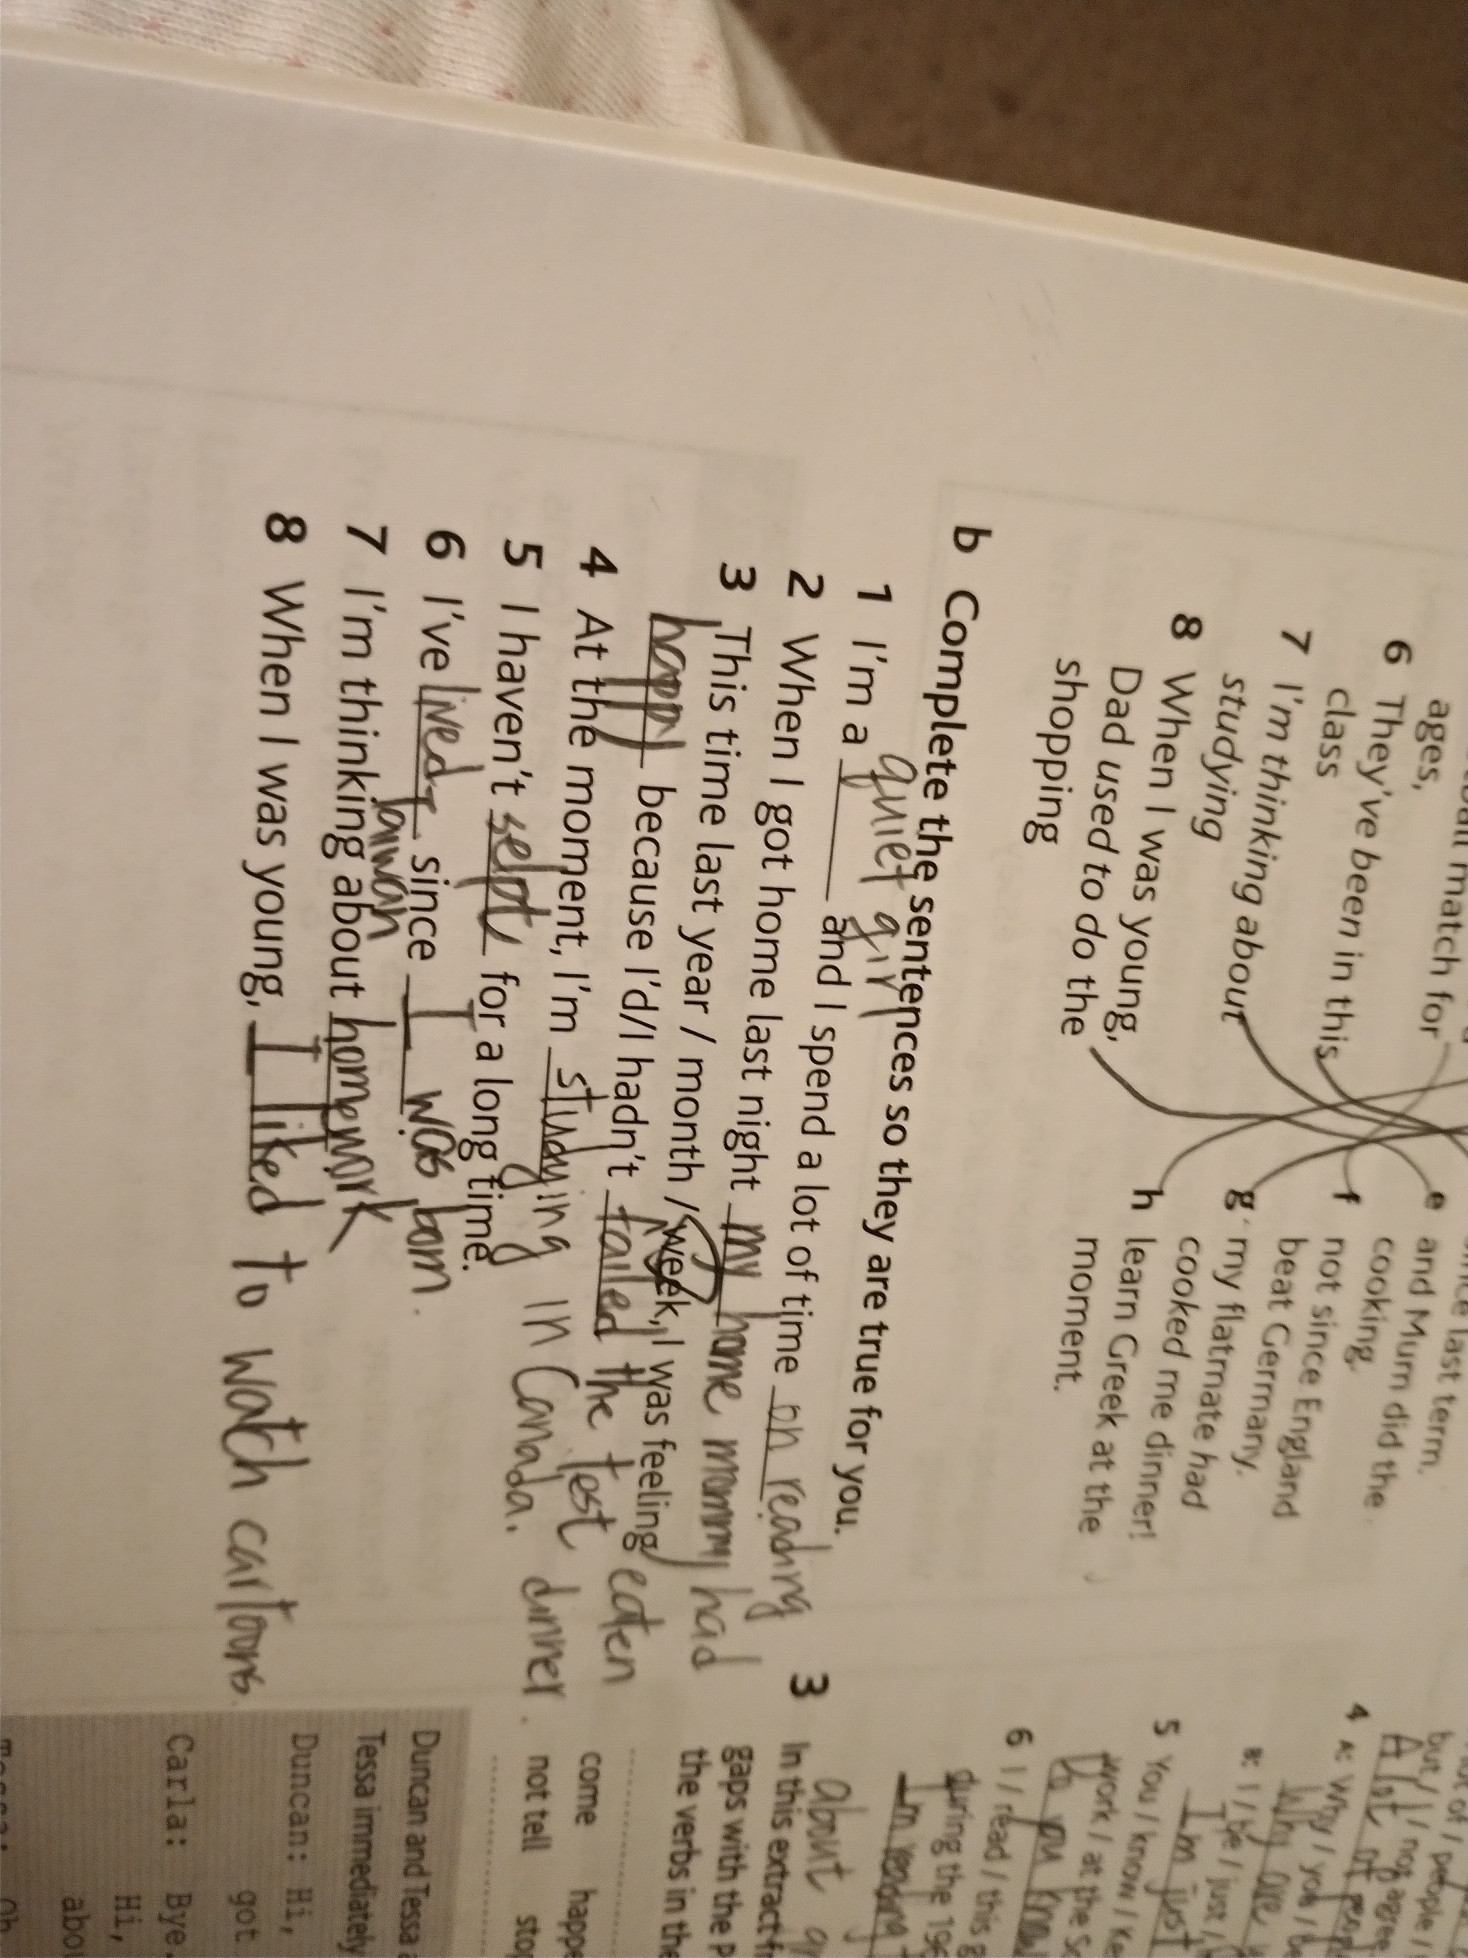 ages,
6 They've been in this
class
7 I'm thinking about
studying
8 When I was young,
Dad used to do the
shopping
e and Mum did the
cooking.
f not since England
beat Germany.
g my flatmate had
cooked me dinner!
h learn Greek at the
moment.
b Complete the sentences so they are true for you.
1 I'm a quiet girl and I spend a lot of time on reading
2 When I got home last night my home mommy had eaten dinner.
3 This time last year / month / week, I was feeling
happy because I'd/I hadn't failed the test
4 At the moment, I'm studying in Canada.
5 I haven't selpt for a long time.
6 I've lived since I was born.
taiwan
7 I'm thinking about homework
8 When I was young, I liked to watch cartoons.
but / I / not agree
4 A: Why / you /
B: I / be / just /
I'm just
5 You / know /
work / at the
Do you know
6 I / read / this
during the
I'm reading
about
3 In this extract
gaps with the
the verbs in the
come
not tell
Duncan and Tessa
Tessa immediately
Duncan: Hi,
got
Carla: Bye.
Hi,